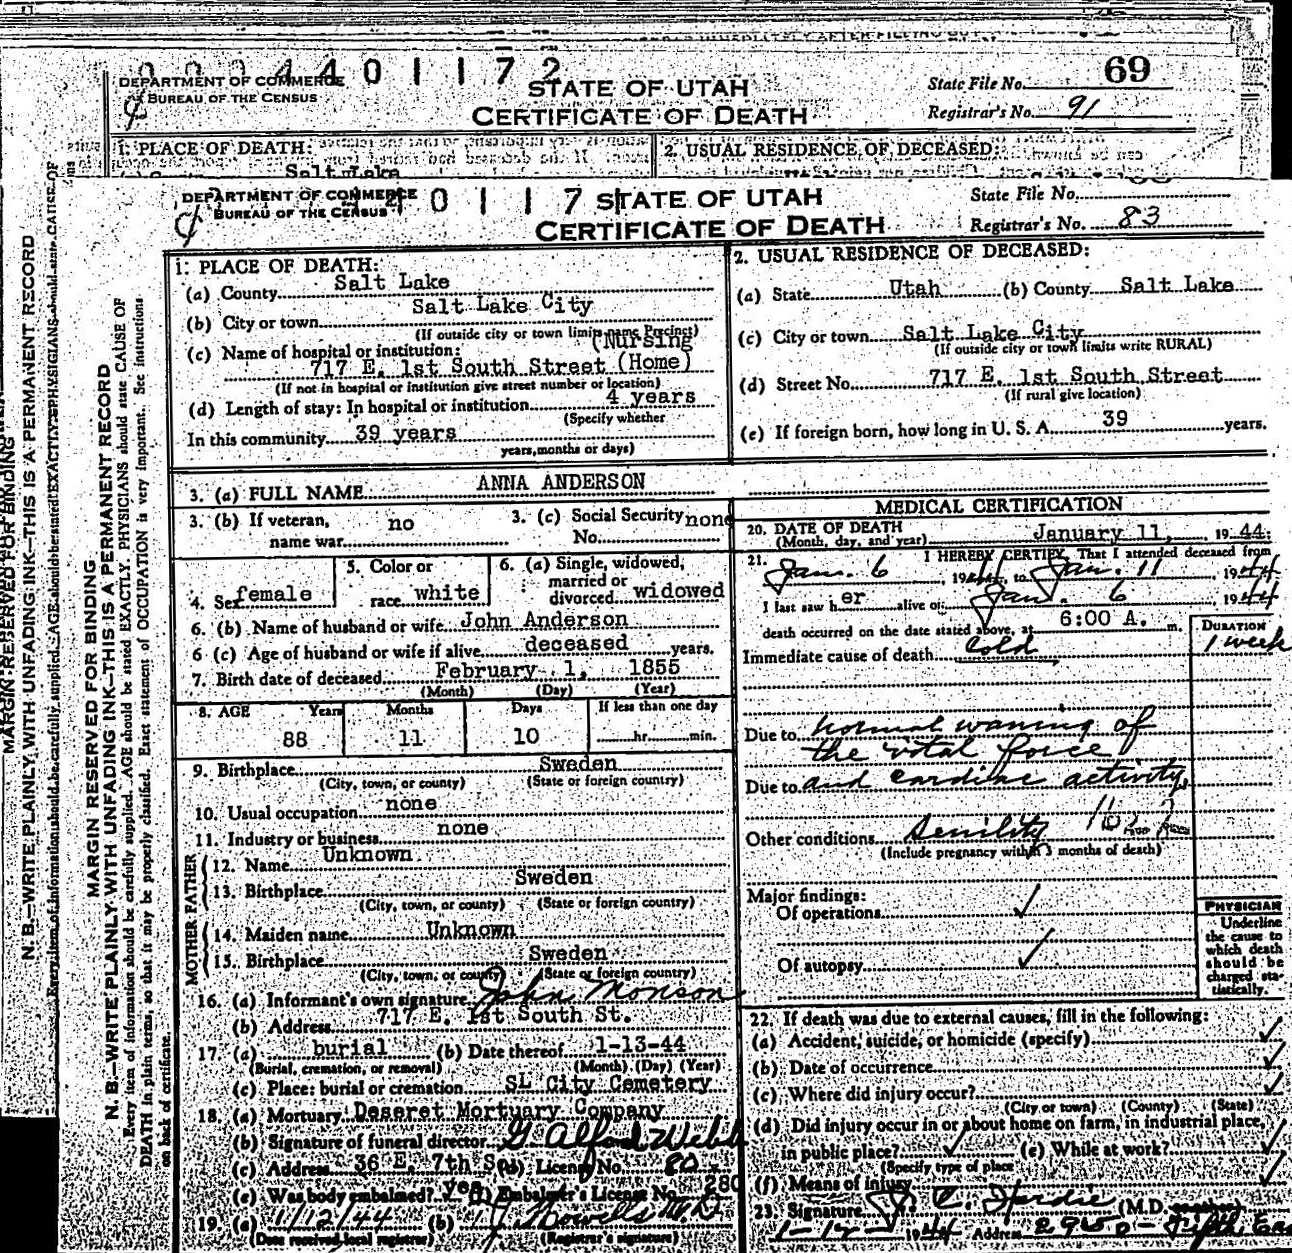 0 0 0 4 4 0 1 1 7 2
DEPARTMENT OF COMMERCE
BUREAU OF THE CENSUS
STATE OF UTAH
CERTIFICATE OF DEATH
State File No. 69
Registrar's No. 91
1. PLACE OF DEATH:
2. USUAL RESIDENCE OF DECEASED:
Salt Lake
DEPARTMENT OF COMMERCE
BUREAU OF THE CENSUS
0 1 1 7
STATE OF UTAH
CERTIFICATE OF DEATH
State File No.
Registrar's No. 83
MARGIN RESERVED FOR BINDING
N. B.—WRITE PLAINLY, WITH UNFADING INK—THIS IS A PERMANENT RECORD
MARGIN RESERVED FOR BINDING
N. B.—WRITE PLAINLY WITH UNFADING INK—THIS IS A PERMANENT RECORD
Every item of information should be carefully supplied. AGE should be stated EXACTLY. PHYSICIANS should state CAUSE OF
DEATH in plain terms, so that it may be properly classified. Exact statement of OCCUPATION is very important. See instructions
on back of certificate.
1. PLACE OF DEATH:
(a) County Salt Lake
(b) City or town Salt Lake City
(If outside city or town limits name Precinct)
(c) Name of hospital or institution: (Nursing
717 E. 1st South Street (Home)
(If not in hospital or institution give street number or location)
(d) Length of stay: In hospital or institution 4 years
(Specify whether
In this community 39 years
years, months or days)
2. USUAL RESIDENCE OF DECEASED:
(a) State Utah (b) County Salt Lake
(c) City or town Salt Lake City
(If outside city or town limits write RURAL)
(d) Street No. 717 E. 1st South Street
(If rural give location)
(e) If foreign born, how long in U. S. A. 39 years.
3. (a) FULL NAME ANNA ANDERSON
3. (b) If veteran, name war no
3. (c) Social Security No. none
4. Sex female
5. Color or race white
6. (a) Single, widowed, married or divorced widowed
6. (b) Name of husband or wife John Anderson
6 (c) Age of husband or wife if alive deceased years.
7. Birth date of deceased February 1, 1855
(Month) (Day) (Year)
8. AGE Years Months Days If less than one day
88 11 10 hr. min.
9. Birthplace Sweden
(City, town, or county) (State or foreign country)
10. Usual occupation none
11. Industry or business none
FATHER
12. Name Unknown
13. Birthplace Sweden
(City, town, or county) (State or foreign country)
MOTHER
14. Maiden name Unknown
15. Birthplace Sweden
(City, town, or county) (State or foreign country)
16. (a) Informant's own signature John Monson
(b) Address 717 E. 1st South St.
17. (a) burial (b) Date thereof 1-13-44
(Burial, cremation, or removal) (Month) (Day) (Year)
(c) Place: burial or cremation SL City Cemetery
18. (a) Mortuary Deseret Mortuary Company
(b) Signature of funeral director G Alford Webb
(c) Address 36 E. 7th So. (d) License No. 80
(e) Was body embalmed? yes (f) Embalmer's License No. 280
19. (a) 1/12/44 (b) M.D.
(Date received local registrar) (Registrar's signature)
MEDICAL CERTIFICATION
20. DATE OF DEATH January 11, 1944
(Month, day, and year)
21. I HEREBY CERTIFY, That I attended deceased from
Jan. 6, 1944, to Jan. 11 1944
I last saw her alive on Jan. 6 1944
death occurred on the date stated above, at 6:00 A. m.
DURATION
Immediate cause of death Cold 1 week
Due to normal waning of
the vital force
Due to and cardiac activity,
Other conditions Senility
(Include pregnancy within 3 months of death)
Major findings:
Of operations ✓
Of autopsy ✓
PHYSICIAN
Underline
the cause to
which death
should be
charged sta-
tistically.
22. If death was due to external causes, fill in the following:
(a) Accident, suicide, or homicide (specify) ✓
(b) Date of occurrence ✓
(c) Where did injury occur? ✓
(City or town) (County) (State)
(d) Did injury occur in or about home on farm, in industrial place,
in public place? ✓ (e) While at work? ✓
(Specify type of place
(f) Means of injury ✓
23. Signature J. C. Hardie (M.D.
1-12-1944 Address